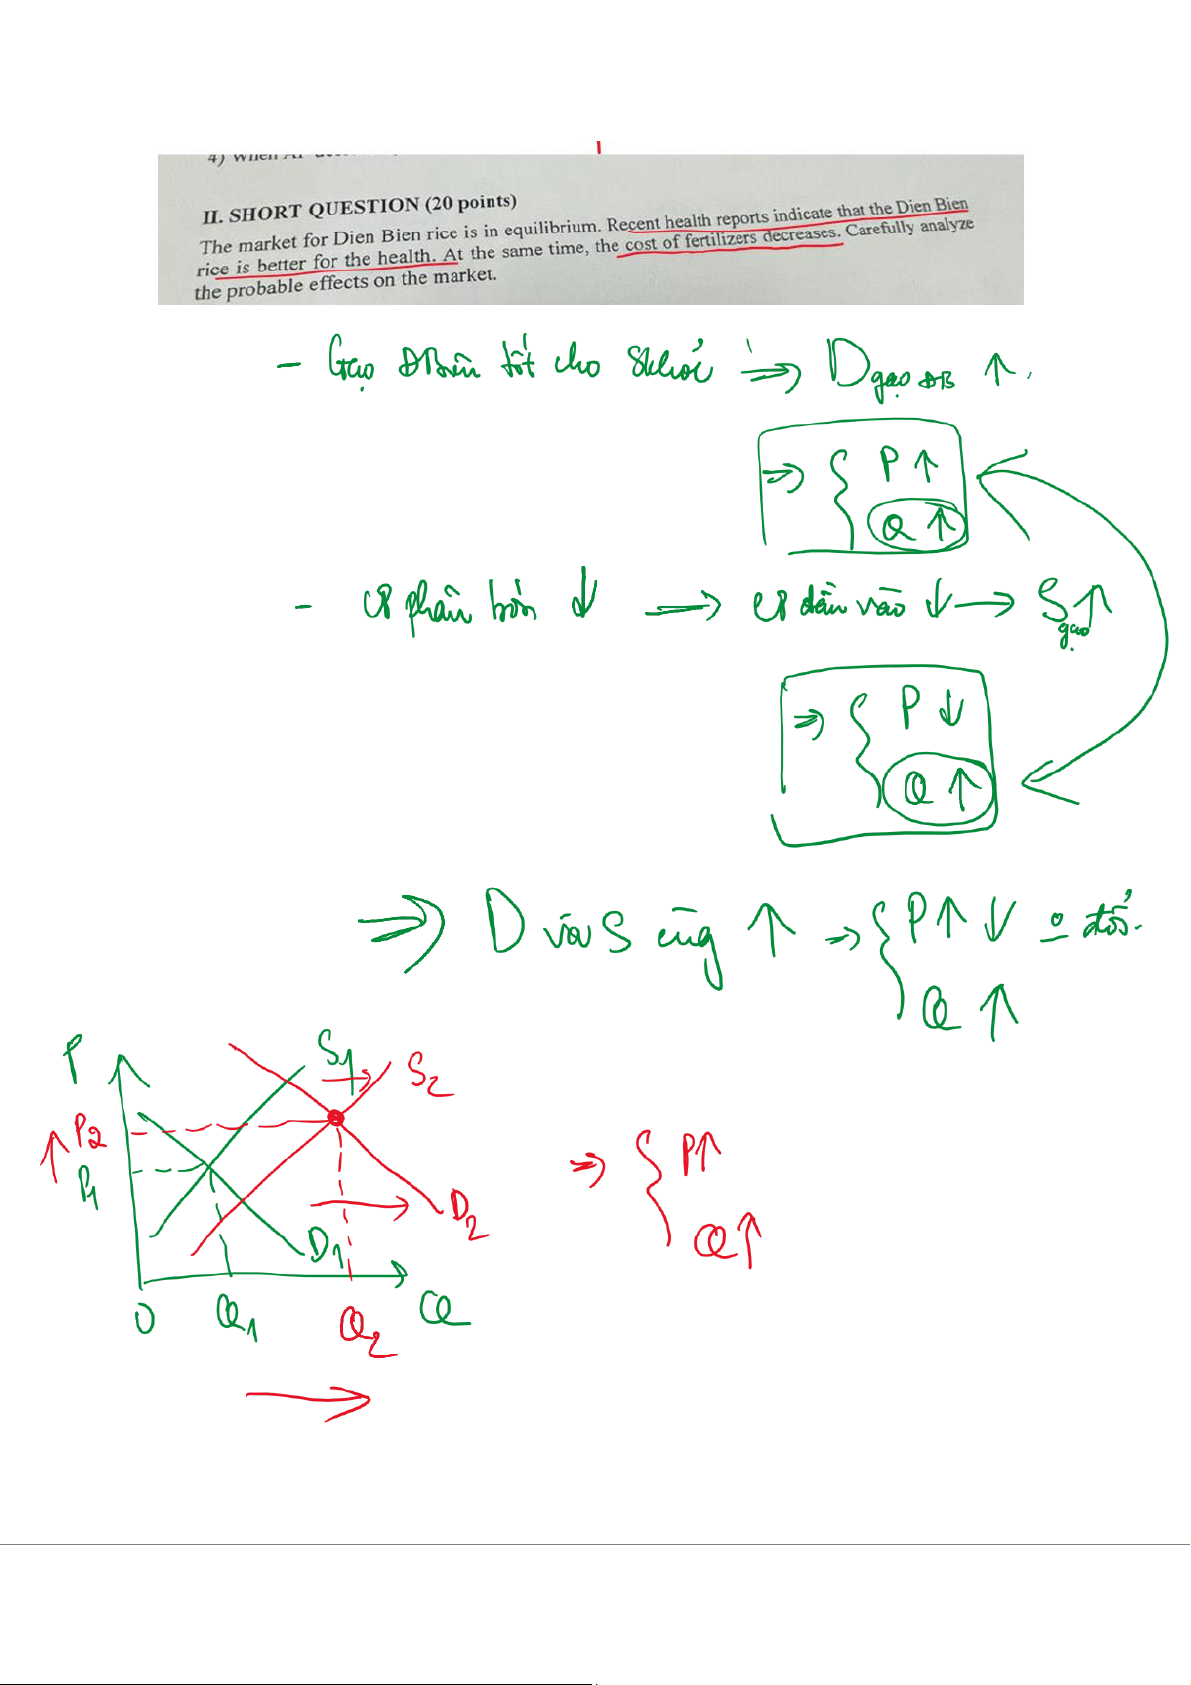 II. SHORT QUESTION (20 points)
The market for Dien Bien rice is in equilibrium. Recent health reports indicate that the Dien Bien
rice is better for the health. At the same time, the cost of fertilizers decreases. Carefully analyze
the probable effects on the market.
- Gạo ĐBiên tốt cho skhỏe ⇒ D gạo ĐB ↑.
⇒ { P ↑
Q ↑
- CP phân bón ↓ → CP đầu vào ↓ → S gạo ↑
⇒ { P ↓
Q ↑
⇒ D và S cùng ↑ ⇒ { P ↑ ↓ đổi.
Q ↑
P
S1
S2
↑ P2
P1
D2
D1
O Q1 Q2 Q
⇒ { P ↑
Q ↑